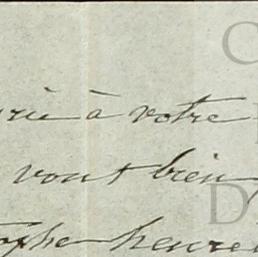 rie à votre
vont bien
ophe heure